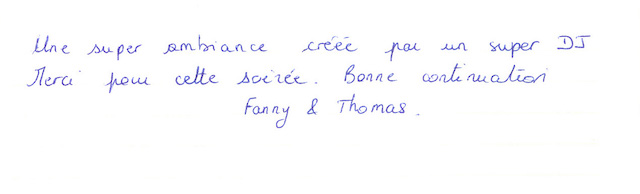 Une super ambiance créée par un super DJ
Merci pour cette soirée. Bonne continuation
Fanny & Thomas.